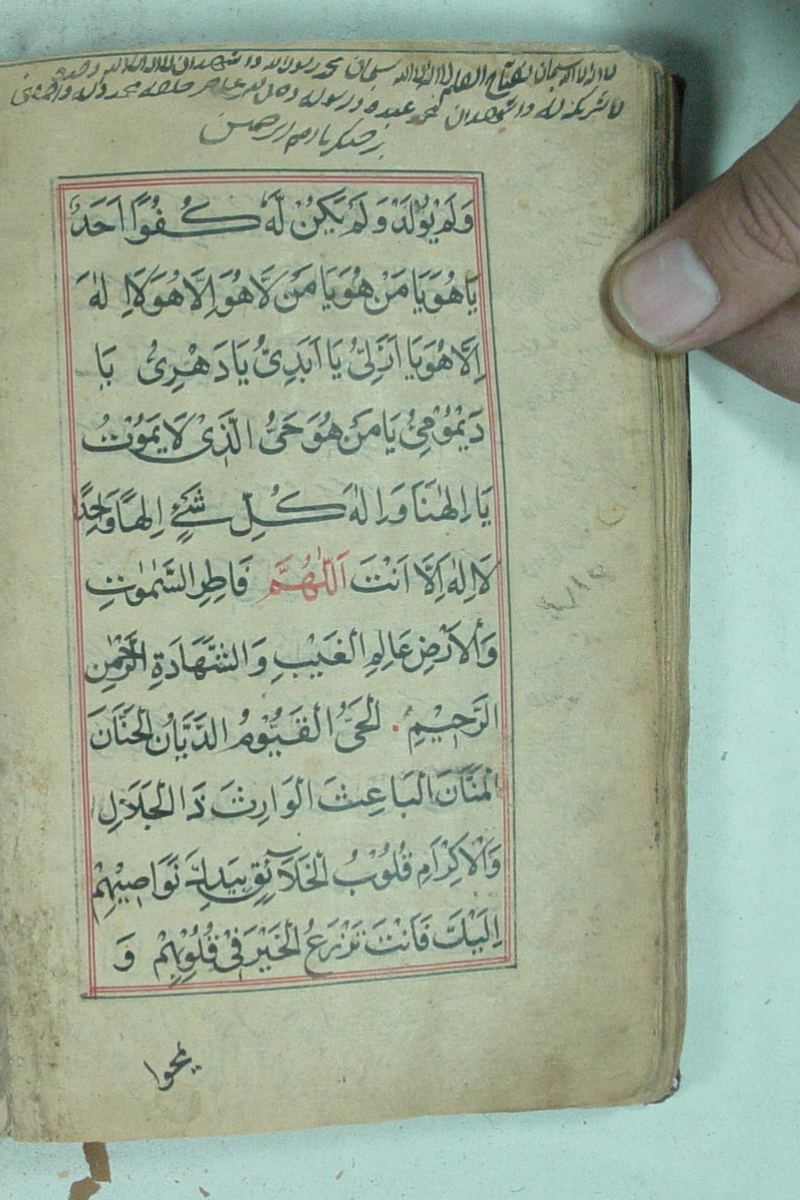 لا اله الا الله سبحان الفتاح العليم لا اله الا الله سبحان محمد رسول الله واشهد ان لا اله الا الله وحده
لا شريك له واشهد ان محمد عبده ورسوله
ارحم الراحمين
وَلَمْ يُوْلَدْ وَلَمْ يَكُنْ لَّهٗ كُفُوًا اَحَدٌ
يَا هُوَ يَا مَنْ هُوَ يَا مَنْ لَّا هُوَ اِلَّا هُوَ لَا اِلٰهَ
اِلَّا هُوَ يَا اَزَلِىُّ يَا اَبَدِىُّ يَا دَهْرِىُّ يَا
دَيْمُوْمِىُّ يَا مَنْ هُوَ حَىُّ الَّذِىْ لَا يَمُوْتُ
يَا اِلٰهَنَا وَاِلٰهَ كُلِّ شَىْءٍ اِلٰهًا وَّاحِدًا
لَا اِلٰهَ اِلَّا اَنْتَ اَللّٰهُمَّ فَاطِرَ السَّمٰوٰتِ
وَالْاَرْضِ عَالِمِ الْغَيْبِ وَالشَّهَادَةِ الرَّحْمٰنِ
الرَّحِيْمِ. الْحَىُّ الْقَيُّوْمُ الدَّيَّانُ الْحَنَّانَ
الْمَنَّانَ الْبَاعِثَ الْوَارِثَ ذَا الْجَلَالِ
وَالْاِكْرَامِ قُلُوْبُ الْخَلَآئِقِ بِيَدِكَ نَوَاصِيْهِمْ
اِلَيْكَ فَاَنْتَ تَزْرَعُ الْخَيْرَ فِىْ قُلُوْبِهِمْ وَ
يمحوا